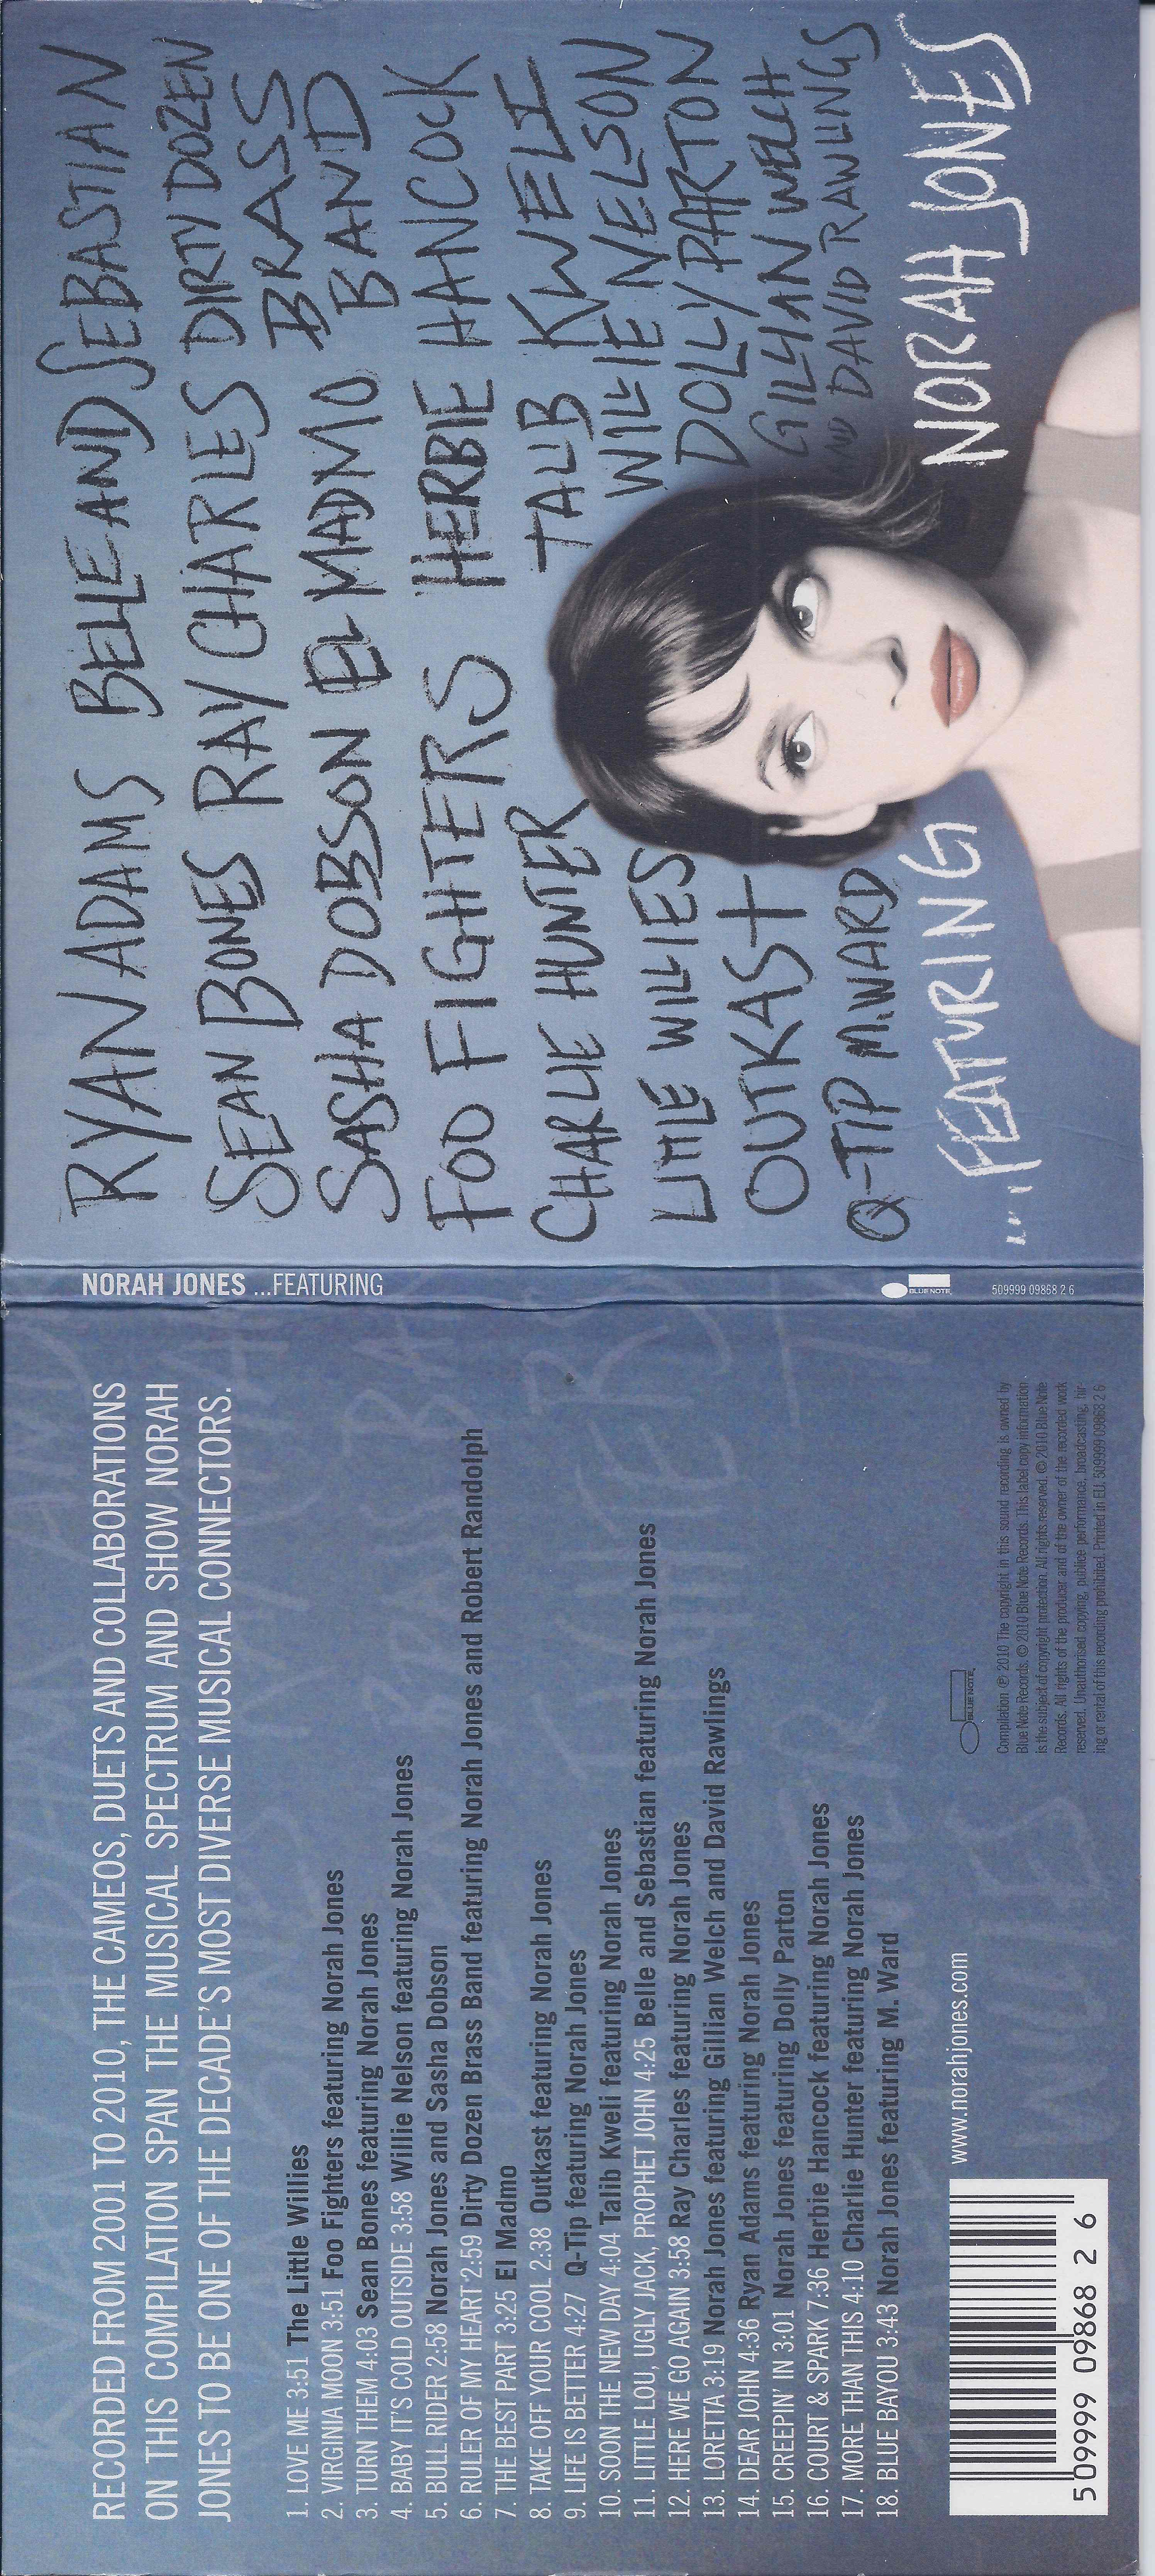 RECORDED FROM 2001 TO 2010, THE CAMEOS, DUETS AND COLLABORATIONS
ON THIS COMPILATION SPAN THE MUSICAL SPECTRUM AND SHOW NORAH
JONES TO BE ONE OF THE DECADE'S MOST DIVERSE MUSICAL CONNECTORS.
1. LOVE ME 3:51 The Little Willies
2. VIRGINIA MOON 3:51 Foo Fighters featuring Norah Jones
3. TURN THEM 4:03 Sean Bones featuring Norah Jones
4. BABY IT'S COLD OUTSIDE 3:58 Willie Nelson featuring Norah Jones
5. BULL RIDER 2:58 Norah Jones and Sasha Dobson
6. RULER OF MY HEART 2:59 Dirty Dozen Brass Band featuring Norah Jones and Robert Randolph
7. THE BEST PART 3:25 El Madmo
8. TAKE OFF YOUR COOL 2:38 Outkast featuring Norah Jones
9. LIFE IS BETTER 4:27 Q-Tip featuring Norah Jones
10. SOON THE NEW DAY 4:04 Talib Kweli featuring Norah Jones
11. LITTLE LOU, UGLY JACK, PROPHET JOHN 4:25 Belle and Sebastian featuring Norah Jones
12. HERE WE GO AGAIN 3:58 Ray Charles featuring Norah Jones
13. LORETTA 3:19 Norah Jones featuring Gillian Welch and David Rawlings
14. DEAR JOHN 4:36 Ryan Adams featuring Norah Jones
15. CREEPIN' IN 3:01 Norah Jones featuring Dolly Parton
16. COURT & SPARK 7:36 Herbie Hancock featuring Norah Jones
17. MORE THAN THIS 4:10 Charlie Hunter featuring Norah Jones
18. BLUE BAYOU 3:43 Norah Jones featuring M. Ward
5 09999 09868 2 6
www.norahjones.com
BLUE NOTE
Compilation ℗ 2010 The copyright in this sound recording is owned by
Blue Note Records. © 2010 Blue Note Records. This label copy information
is the subject of copyright protection. All rights reserved. © 2010 Blue Note
Records. All rights of the producer and of the owner of the recorded work
reserved. Unauthorised copying, publice performance, broadcasting, hir-
ing or rental of this recording prohibited. Printed in EU. 509999 09868 2 6
NORAH JONES ...FEATURING
BLUE NOTE
509999 09868 2 6
RYAN ADAMS BELLE AND SEBASTIAN
SEAN BONES RAY CHARLES DIRTY DOZEN
BRASS
SASHA DOBSON EL MADMO BAND
FOO FIGHTERS HERBIE HANCOCK
CHARLIE HUNTER TALIB KWELI
LITTLE WILLIES WILLIE NELSON
OUTKAST DOLLY PARTON
Q-TIP M. WARD GILLIAN WELCH
AND DAVID RAWLINGS
...FEATURING NORAH JONES